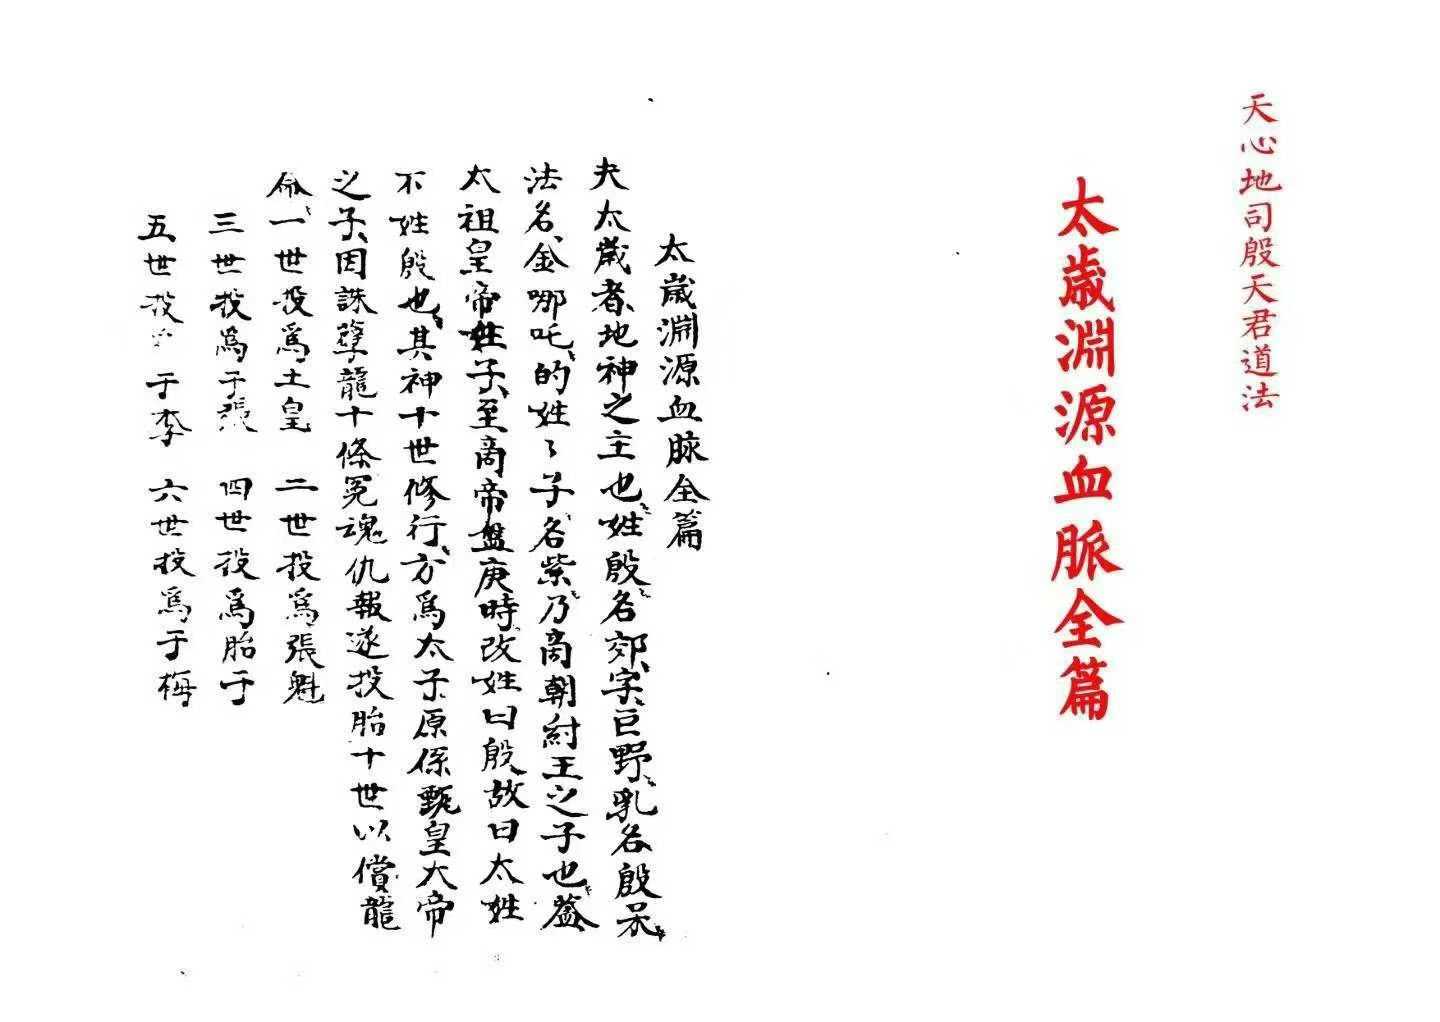 天心地司殷天君道法
太歲淵源血脈全篇
太歲淵源血脉全篇
夫太歲者地神之主也姓殷名郊字巨野乳名殷呆
法名金哪吒的姓〻子名紫乃商朝紂王之子也蓋
太祖皇帝姓子至商帝盤庚時改姓曰殷故曰太姓
不姓殷也其神十世修行方爲太子原係甄皇大帝
之子因誅孽龍十條冤魂仇報遂投胎十世以償龍
命一世投爲土皇 二世投爲張魁
三世投爲于張 四世投爲胎于
五世投于李 六世投爲于梅